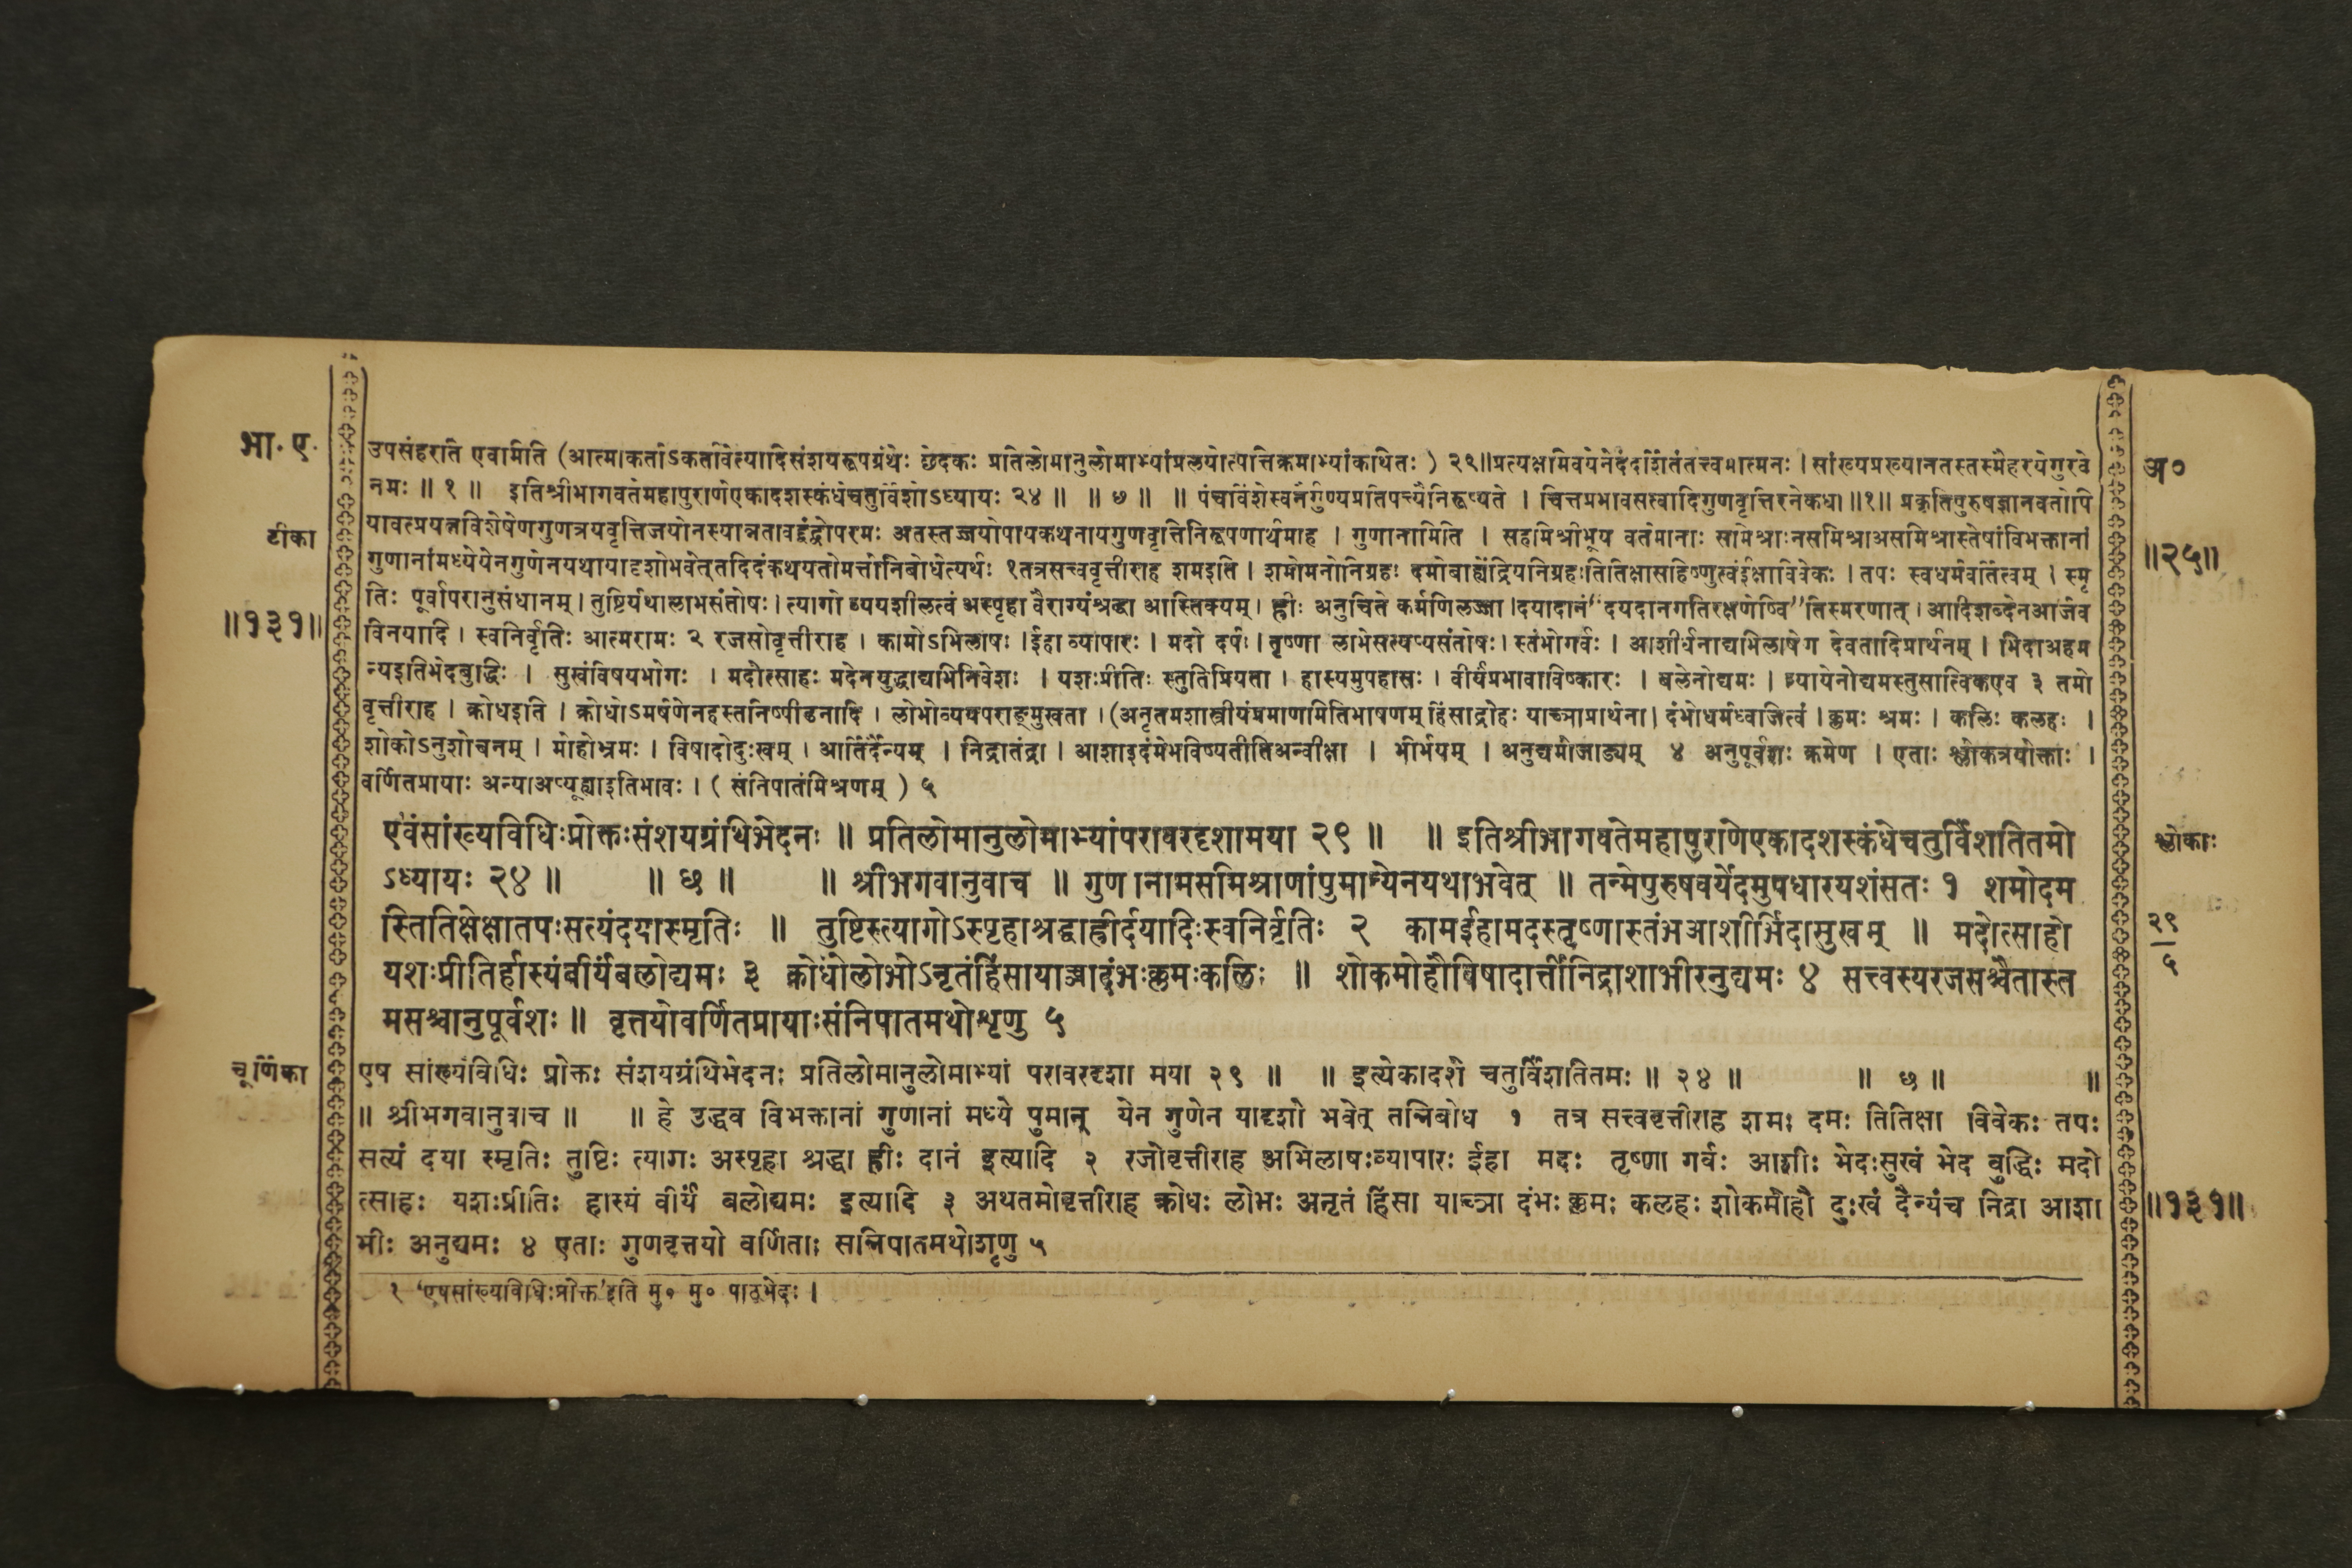 भा. ए.
उपसंहरति एवमिति (आत्माकर्ताऽकर्तावेत्यादिसंशयरूपग्रंथेः छेदकः प्रतिलोमानुलोमाभ्यांप्रलयोत्पत्तिक्रमाभ्यांकथितः ) २९॥प्रत्यक्षमिवयेनेदंदर्शितंतत्त्वमात्मनः । सांख्यप्रख्यानतस्तस्मैहरयेगुरवे
अ०
नमः ॥ १ ॥ इतिश्रीभागवतेमहापुराणेएकादशस्कंधेचतुर्विंशोऽध्यायः २४ ॥ ॥ ७ ॥ ॥ पंचविंशेस्वनैर्गुण्यप्रतिपत्त्यैनिरूप्यते । चित्तप्रभावसत्वादिगुणवृत्तिरनेकधा ॥१॥ प्रकृतिपुरुषज्ञानवतोपि
टीका
यावत्प्रयत्नविशेषेणगुणत्रयवृत्तिजयोनस्यान्नतावद्द्वंद्वोपरमः अतस्तज्जयोपायकथनायगुणवृत्तिनिरूपणार्थमाह । गुणानामिति । सहमिश्रीभूय वर्तमानाः समिश्राःनसमिश्राअसमिश्रास्तेषांविभक्तानां
॥२५॥
गुणानांमध्येयेनगुणेनयथायादृशोभवेत्तदिदंकथयतोमत्तोनिबोधेत्यर्थः १तत्रसत्त्ववृत्तीराह शमइति । शमोमनोनिग्रहः दमोबाह्येंद्रियनिग्रहःतितिक्षासहिष्णुत्वंईक्षाविवेकः । तपः स्वधर्मवर्तित्वम् । स्मृ
तिः पूर्वापरानुसंधानम् । तुष्टिर्यथालाभसंतोषः । त्यागो व्ययशीलत्वं अस्पृहा वैराग्यंश्रद्धा आस्तिक्यम् । ह्रीः अनुचिते कर्मणिलज्जा ।दयादानं“दयदानगतिरक्षणेष्वि”तिस्मरणात् । आदिशब्देनआर्जव
॥१३१॥
विनयादि । स्वनिर्वृतिः आत्मरामः २ रजसोवृत्तीराह । कामोऽभिलाषः ।ईहा व्यापारः । मदो दर्पः । तृष्णा लाभेसत्यप्यसंतोषः । स्तंभोगर्वः । आशीर्धनाद्यभिलाषेण देवतादिप्रार्थनम् । भिदाअहम
न्यइतिभेदबुद्धिः । सुखंविषयभोगः । मदोत्साहः मदेनयुद्धाद्यभिनिवेशः । यशःप्रीतिः स्तुतिप्रियता । हास्यमुपहासः । वीर्यंप्रभावाविष्कारः । बलेनोद्यमः । न्यायेनोद्यमस्तुसात्विकएव ३ तमो
वृत्तीराह । क्रोधइति । क्रोधोऽमर्षणेनहस्तनिष्पीडनादि । लोभोव्ययपराङ्मुखता । (अनृतमशास्त्रीयंप्रमाणमितिभाषणम् हिंसाद्रोहः याच्ञाप्रार्थना। दंभोधर्मध्वजित्वं । क्लमः श्रमः । कलिः कलहः ।
शोकोऽनुशोचनम् । मोहोभ्रमः । विषादोदुःखम् । आर्तिर्दैन्यम् । निद्रातंद्रा । आशाइदंमेभविष्यतीतिअन्वीक्षा । भीर्भयम् । अनुद्यमोजाड्यम् ४ अनुपूर्वशः क्रमेण । एताः श्लोकत्रयोक्ताः ।
वर्णितप्रायाः अन्याअप्यूह्याइतिभावः । ( संनिपातंमिश्रणम् ) ५
एवंसांख्यविधिःप्रोक्तःसंशयग्रंथिभेदनः ॥ प्रतिलोमानुलोमाभ्यांपरावरदृशामया २९ ॥ ॥ इतिश्रीभागवतेमहापुराणेएकादशस्कंधेचतुर्विंशतितमो
श्लोकाः
ऽध्यायः २४ ॥ ॥ छ ॥ ॥ श्रीभगवानुवाच ॥ गुणानामसमिश्राणांपुमान्येनयथाभवेत् ॥ तन्मेपुरुषवर्येदमुपधारयशंसतः १ शमोदम
स्तितिक्षेक्षातपःसत्यंदयास्मृतिः ॥ तुष्टिस्त्यागोऽस्पृहाश्रद्धाह्रीर्दयादिःस्वनिर्वृतिः २ कामईहामदस्तृष्णास्तंभआशीर्भिदासुखम् ॥ मदोत्साहो
२९
५
यशःप्रीतिर्हास्यंवीर्यंबलोद्यमः ३ क्रोधोलोभोऽनृतंहिंसायाच्ञादंभःक्लमःकलिः ॥ शोकमोहौविषादार्त्तीनिद्राशाभीरनुद्यमः ४ सत्त्वस्यरजसश्चैतास्त
मसश्चानुपूर्वशः ॥ वृत्तयोवर्णितप्रायाःसंनिपातमथोशृणु ५
चूर्णिका
एष सांख्यविधिः प्रोक्तः संशयग्रंथिभेदनः प्रतिलोमानुलोमाभ्यां परावरदृशा मया २९ ॥ ॥ इत्येकादशे चतुर्विंशतितमः ॥ २४ ॥ ॥ छ ॥ ॥
॥ श्रीभगवानुवाच ॥ ॥ हे उद्धव विभक्तानां गुणानां मध्ये पुमान् येन गुणेन यादृशो भवेत् तन्निबोध १ तत्र सत्त्ववृत्तीराह शमः दमः तितिक्षा विवेकः तपः
सत्यं दया स्मृतिः तुष्टिः त्यागः अस्पृहा श्रद्धा ह्रीः दानं इत्यादि २ रजोवृत्तीराह अभिलाषःव्यापारः ईहा मदः तृष्णा गर्वः आशीः भेदःसुखं भेद बुद्धिः मदो
त्साहः यशःप्रीतिः हास्यं वीर्यं बलोद्यमः इत्यादि ३ अथतमोवृत्तीराह क्रोधः लोभः अनृतं हिंसा याच्ञा दंभः क्लमः कलहः शोकमोहौ दुःखं दैन्यंच निद्रा आशा
॥१३१॥
भीः अनुद्यमः ४ एताः गुणवृत्तयो वर्णिताः सन्निपातमथोशृणु ५
१ ‘एषसांख्यविधिःप्रोक्त’इति मु० मु० पाठभेदः ।